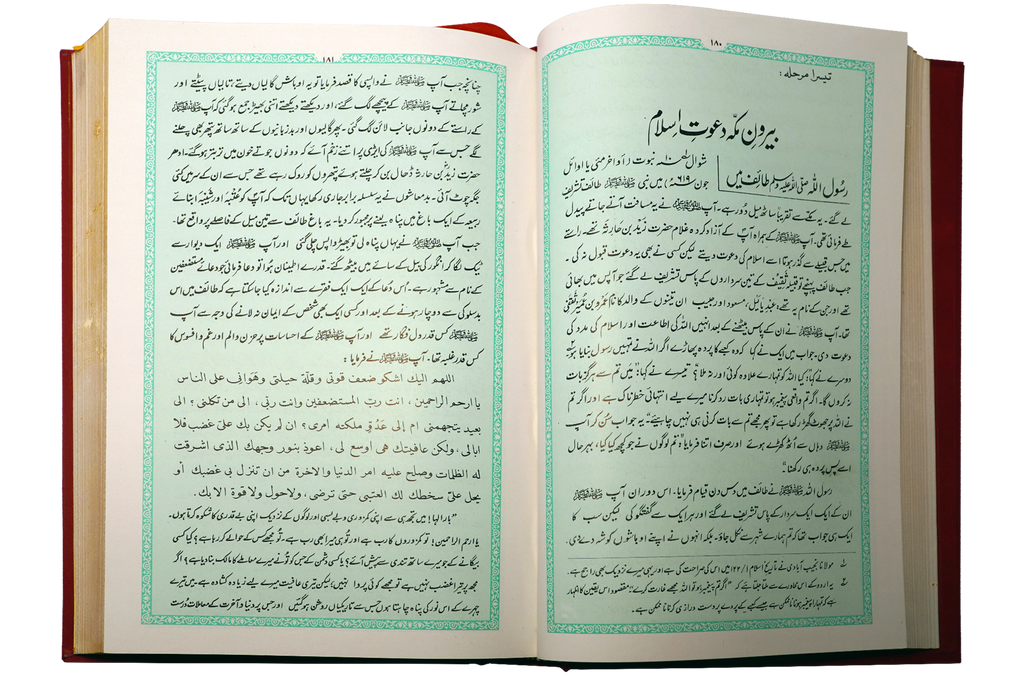 ۱۸۰
تیسرا مرحلہ:
بیرونِ مکّہ دعوتِ اسلام
رسول اللہ صلی اللہ علیہ وسلم طائف میں
شوال ۱۰ نبوت (أواخر مئی یا اوائل
جون ۶۱۹ء) میں نبی ﷺ طائف تشریف
لے گئے۔ یہ مکّے سے تقریباً ساٹھ میل دُور ہے۔ آپ ﷺ نے یہ مسافت آتے جاتے پیدل
طے فرمائی تھی۔ آپ ﷺ کے ہمراہ آپؐ کے آزاد کردہ غلام حضرت زیدؓ بن حارثہ تھے۔ راستے
میں جس قبیلے سے گذر ہوتا اسے اسلام کی دعوت دیتے لیکن کسی نے بھی یہ دعوت قبول نہ کی۔
جب طائف پہنچے تو قبیلہ ثقیف کے تین سرداروں کے پاس تشریف لے گئے جو آپس میں بھائی
تھے اور جن کے نام یہ تھے، عبدیالیل، مسعود اور حبیب ان تینوں کے والد کا نام عمرو بن عمیر ثقفی
تھا۔ آپ ﷺ نے ان کے پاس بیٹھنے کے بعد انہیں اللہ کی اطاعت اور اسلام کی مدد کی
دعوت دی۔ جواب میں ایک نے کہا کہ وہ کعبے کا پردہ پھاڑے اگر اللہ نے تمہیں رسول بنایا ہو۔
دوسرے نے کہا: کیا اللہ کو تمہارے علاوہ کوئی اور نہ ملا؟ تیسرے نے کہا: "میں تم سے ہرگز بات
نہ کروں گا۔ اگر تم واقعی پیغمبر ہو تو تمہاری بات رد کرنا میرے لیے انتہائی خطرناک ہے اور اگر تم
نے اللہ پر جھوٹ گھڑ رکھا ہے تو پھر مجھے تم سے بات کرنی ہی نہیں چاہیئے" یہ جواب سُن کر آپ
ﷺ وہاں سے اُٹھ کھڑے ہوئے اور صرف اتنا فرمایا: "تم لوگوں نے جو کچھ کیا کیا، بہرحال
اسے پس پردہ ہی رکھنا۔"
رسول اللہ ﷺ نے طائف میں دس دن قیام فرمایا۔ اس دوران آپ ﷺ
ان کے ایک ایک سردار کے پاس تشریف لے گئے اور ہر ایک سے گفتگو کی لیکن سب کا
ایک ہی جواب تھا کہ تم ہمارے شہر سے نکل جاؤ۔ بلکہ انہوں نے اپنے اوباشوں کو شہ دے دی۔
مولانا نجیب آبادی نے تاریخ اسلام ۱/۱۲۲ میں اس کی صراحت کی ہے اور یہی میرے نزدیک بھی راجح ہے۔
یہ اردو کے اس محاورے سے ملتا جلتا ہے کہ "اگر تم پیغمبر ہو تو اللہ مجھے غارت کرے" مقصود اس یقین کا اظہار
ہے کہ تمہارا پیغمبر ہونا ناممکن ہے جیسے کعبے کے پردے پر دست درازی کرنا ناممکن ہے۔
۱۸۱
چنانچہ جب آپ ﷺ نے واپسی کا قصد فرمایا تو یہ اوباش گالیاں دیتے، تالیاں پیٹتے اور
شور مچاتے آپ ﷺ کے پیچھے لگ گئے، اور دیکھتے دیکھتے اتنی بھیڑ جمع ہو گئی کہ آپ ﷺ
کے راستے کے دونوں جانب لائن لگ گئی۔ پھر گالیوں اور بدزبانیوں کے ساتھ ساتھ پتھر بھی چلنے
لگے جس سے آپ ﷺ کی ایڑی پر اتنے زخم آئے کہ دونوں جوتے خون میں تر بتر ہو گئے۔ ادھر
حضرت زیدؓ بن حارثہ ڈھال بن کر چلتے ہوئے پتھروں کو روک رہے تھے جس سے ان کے سر میں کئی
جگہ چوٹ آئی۔ بدمعاشوں نے یہ سلسلہ برابر جاری رکھا یہاں تک کہ آپؐ کو عُتبہ اور شیبہ ابنائے
ربیعہ کے ایک باغ میں پناہ لینے پر مجبور کر دیا۔ یہ باغ طائف سے تین میل کے فاصلے پر واقع تھا۔
جب آپ ﷺ نے یہاں پناہ لی تو بھیڑ واپس چلی گئی اور آپ ﷺ ایک دیوار سے
ٹیک لگا کر انگور کی بیل کے سائے میں بیٹھ گئے۔ قدرے اطمینان ہوا تو دعا فرمائی جو دعائے مستضعفین
کے نام سے مشہور ہے۔ اس دُعا کے ایک ایک فقرے سے اندازہ کیا جا سکتا ہے کہ طائف میں اس
بدسلوکی سے دوچار ہونے کے بعد اور کسی ایک بھی شخص کے ایمان نہ لانے کی وجہ سے آپ
ﷺ کس قدر دل فگار تھے اور آپ ﷺ کے احساسات پر حزن و الم اور غم و افسوس کا
کس قدر غلبہ تھا۔ آپ ﷺ نے فرمایا:
اللهم اليك اشكو ضعف قوتى وقلة حيلتى وهوانى على الناس
يا ارحم الراحمين، انت ربّ المستضعفين وانت ربى، الى من تكلنى؟ الى
بعيد يتجهمنى ام إلى عَدُوّ ملكته امرى؟ ان لم يكن بك علىّ غضب فلا
ابالى، ولكن عافيتك هى اوسع لى، اعوذ بنور وجهك الذى اشرقت
له الظلمات وصلح عليه امر الدنيا والاخرة من ان تنزل بى غضبك أو
يحل علىّ سخطك لك العتبى حتى ترضى، ولا حول ولا قوة الا بك.
"بار الٰہا! میں تجھ ہی سے اپنی کمزوری و بے بسی اور لوگوں کے نزدیک اپنی بے قدری کا شکوہ کرتا ہوں۔
یا ارحم الراحمین! تو کمزوروں کا رب ہے اور تُو ہی میرا بھی رب ہے۔ تُو مجھے کس کے حوالے کر رہا ہے؟ کیا کسی
بیگانے کے جو میرے ساتھ تندی سے پیش آئے؟ یا کسی دشمن کے جس کو تُو نے میرے معاملے کا مالک بنا دیا ہے؟ اگر
مجھ پر تیرا غضب نہیں ہے تو مجھے کوئی پروا نہیں؛ لیکن تیری عافیت میرے لیے زیادہ کشادہ ہے۔ میں تیرے
چہرے کے اس نُور کی پناہ چاہتا ہوں جس سے تاریکیاں روشن ہو گئیں اور جس پر دنیا و آخرت کے معاملات درست